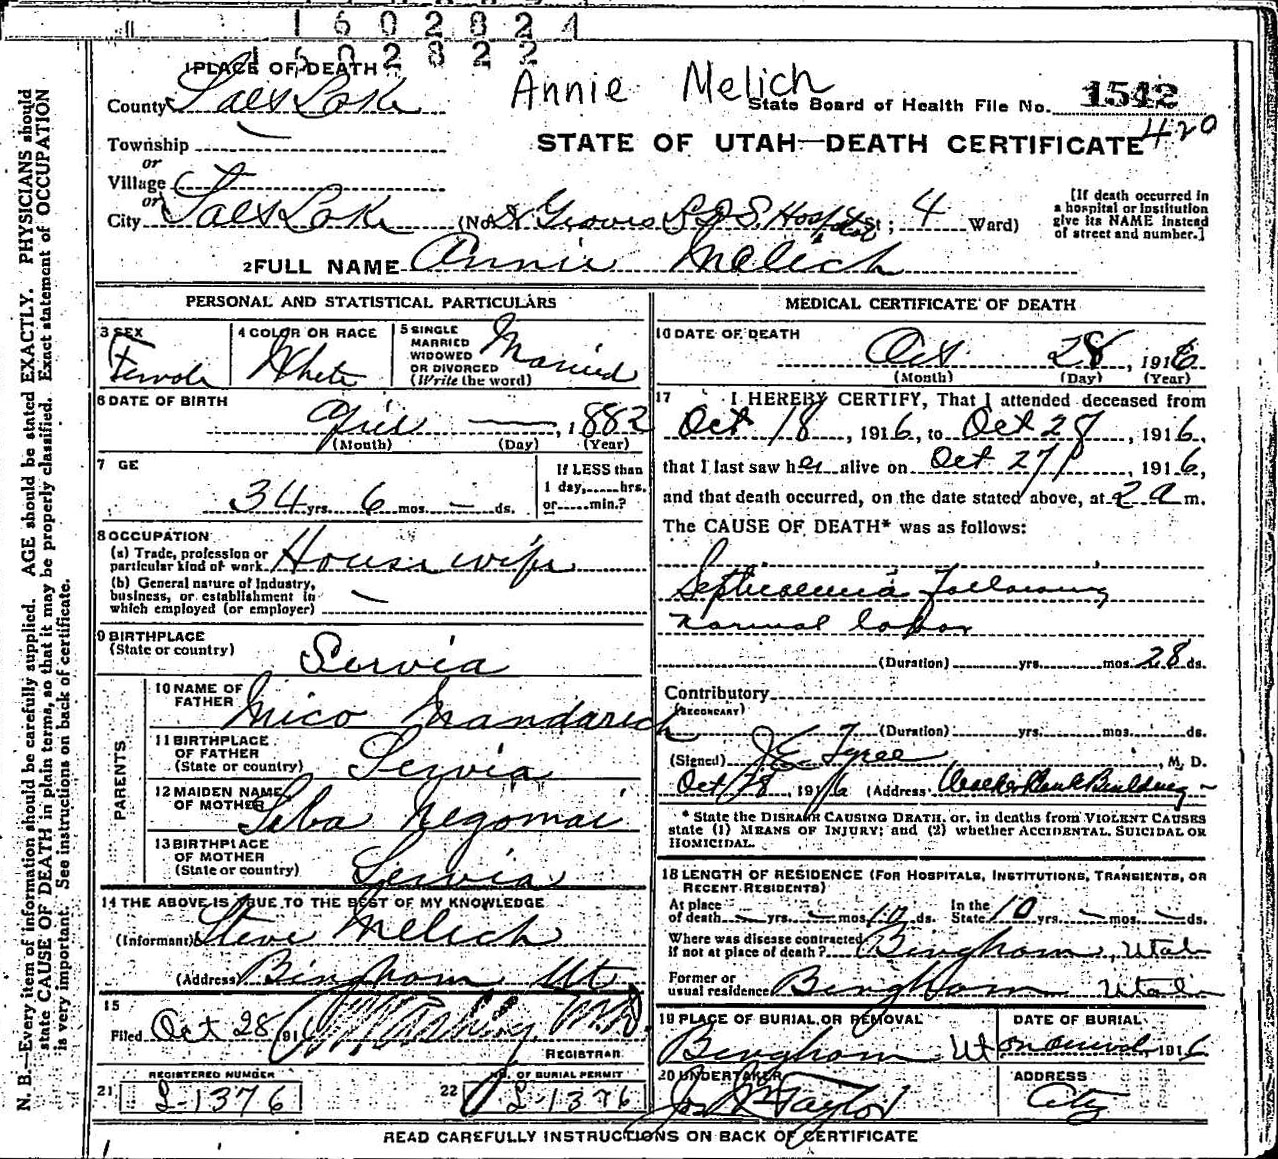 1602824
1602822
1 PLACE OF DEATH
Annie Melich
County Salt Lake
State Board of Health File No. 1542
420
Township
STATE OF UTAH—DEATH CERTIFICATE
or
Village
or
City Salt Lake (No. Dr Groves L.D.S. Hospital St; 4 Ward)
[If death occurred in
a hospital or institution
give its NAME instead
of street and number.]
2 FULL NAME Annie Melich
PERSONAL AND STATISTICAL PARTICULARS
3 SEX Female
4 COLOR OR RACE White
5 SINGLE
MARRIED
WIDOWED
OR DIVORCED
(Write the word) Married
6 DATE OF BIRTH
April — , 1882
(Month) (Day) (Year)
7 GE
34 yrs. 6 mos. — ds.
If LESS than
1 day,......hrs.
or......min.?
8 OCCUPATION
(a) Trade, profession or
particular kind of work Housewife
(b) General nature of Industry,
business, or establishment in
which employed (or employer) —
9 BIRTHPLACE
(State or country) Servia
PARENTS
10 NAME OF
FATHER Mico Mandarich
11 BIRTHPLACE
OF FATHER
(State or country) Servia
12 MAIDEN NAME
OF MOTHER Saba Negomai
13 BIRTHPLACE
OF MOTHER
(State or country) Servia
14 THE ABOVE IS TRUE TO THE BEST OF MY KNOWLEDGE
(Informant) Steve Melich
(Address) Bingham Ut
15
Filed Oct 28 1916 M.D.
REGISTRAR
REGISTERED NUMBER
21 L-1376
NO. OF BURIAL PERMIT
22 L-1376
MEDICAL CERTIFICATE OF DEATH
16 DATE OF DEATH
Oct 28, 1916
(Month) (Day) (Year)
17 I HEREBY CERTIFY, That I attended deceased from
Oct 18, 1916, to Oct 28, 1916,
that I last saw her alive on Oct 27, 1916,
and that death occurred, on the date stated above, at 2 a m.
The CAUSE OF DEATH* was as follows:
Septicaemia following
normal labor
(Duration) yrs. mos. 28 ds.
Contributory
(SECONDARY)
(Duration) yrs. mos. ds.
(Signed) J E Tyree, M. D.
Oct 28, 1916 (Address) Walker Bank Building
* State the DISEASE CAUSING DEATH, or, in deaths from VIOLENT CAUSES
state (1) MEANS OF INJURY; and (2) whether ACCIDENTAL, SUICIDAL OR
HOMICIDAL.
18 LENGTH OF RESIDENCE (FOR HOSPITALS, INSTITUTIONS, TRANSIENTS, OR
RECENT RESIDENTS)
At place
of death — yrs. — mos. 10 ds.
In the
State 10 yrs. — mos. — ds.
Where was disease contracted
if not at place of death? Bingham, Utah
Former or
usual residence Bingham Utah
19 PLACE OF BURIAL OR REMOVAL
Bingham Ut
DATE OF BURIAL
on arrival 1916
20 UNDERTAKER
Jos Wm Taylor
ADDRESS
City
READ CAREFULLY INSTRUCTIONS ON BACK OF CERTIFICATE
N. B.—Every item of information should be carefully supplied. AGE should be stated EXACTLY. PHYSICIANS should
state CAUSE OF DEATH in plain terms, so that it may be properly classified. Exact statement of OCCUPATION
is very important. See instructions on back of certificate.